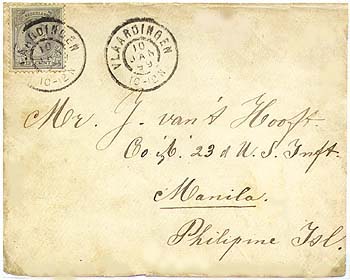 VLAARDINGEN
10
JAN
10-12V
VLAARDINGEN
10
JAN
99
10-12V
Mr. J. van't Hooft.
Co 23 d U.S. Inft.
Manila.
Philipine Isl.